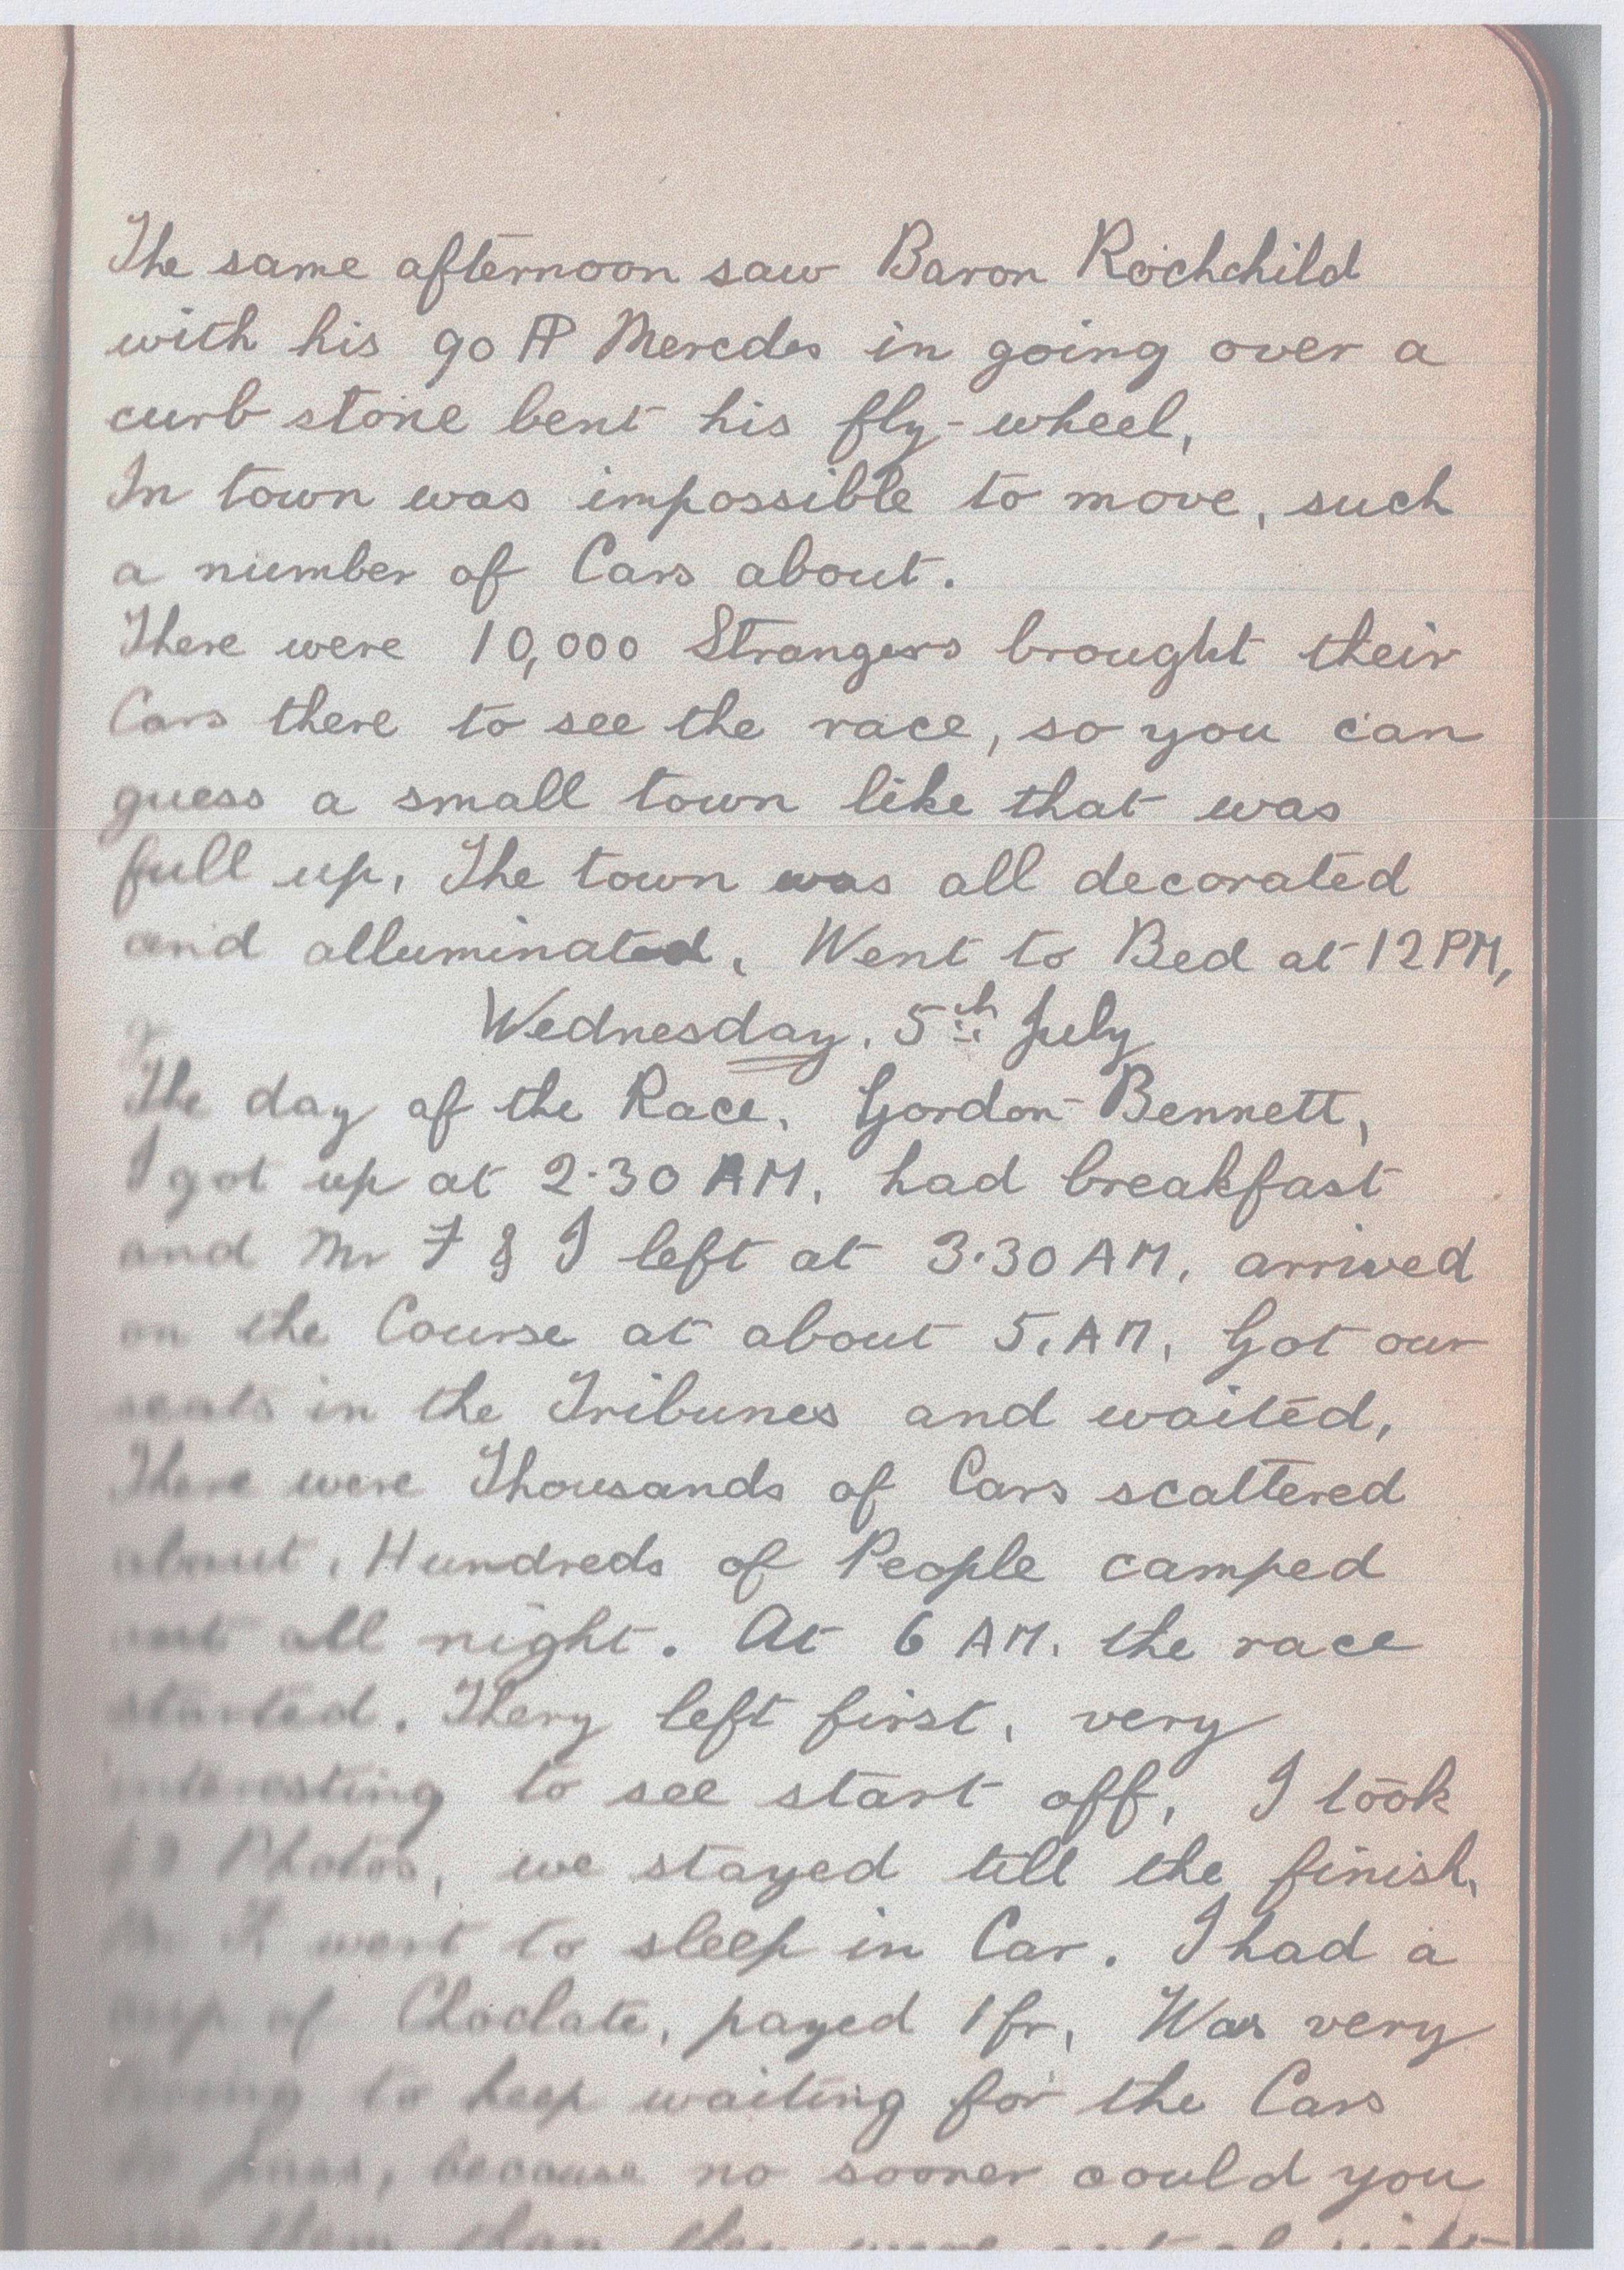 The same afternoon saw Baron Rochchild
with his 90 HP Mercdes in going over a
curb stone bent his fly-wheel,
In town was impossible to move, such
a number of Cars about.
There were 10,000 Strangers brought their
Cars there to see the race, so you can
guess a small town like that was
full up, The town was all decorated
and alluminated, Went to Bed at 12 PM,
Wednesday, 5th July
The day of the Race, Gordon-Bennett,
I got up at 2.30 AM, had breakfast
and Mr F & I left at 3.30 AM, arrived
on the Course at about 5, AM, Got our
seats in the Tribunes and waited,
There were Thousands of Cars scattered
about, Hundreds of People camped
out all night. At 6 AM, the race
started. Thery left first, very
interesting to see start off, I took
Photos, we stayed till the finish,
Mr F, went to sleep in Car. I had a
cup of Choclate, payed 1 fr, Was very
to keep waiting for the Cars
to pass, because no sooner could you
see them than they were out of sight